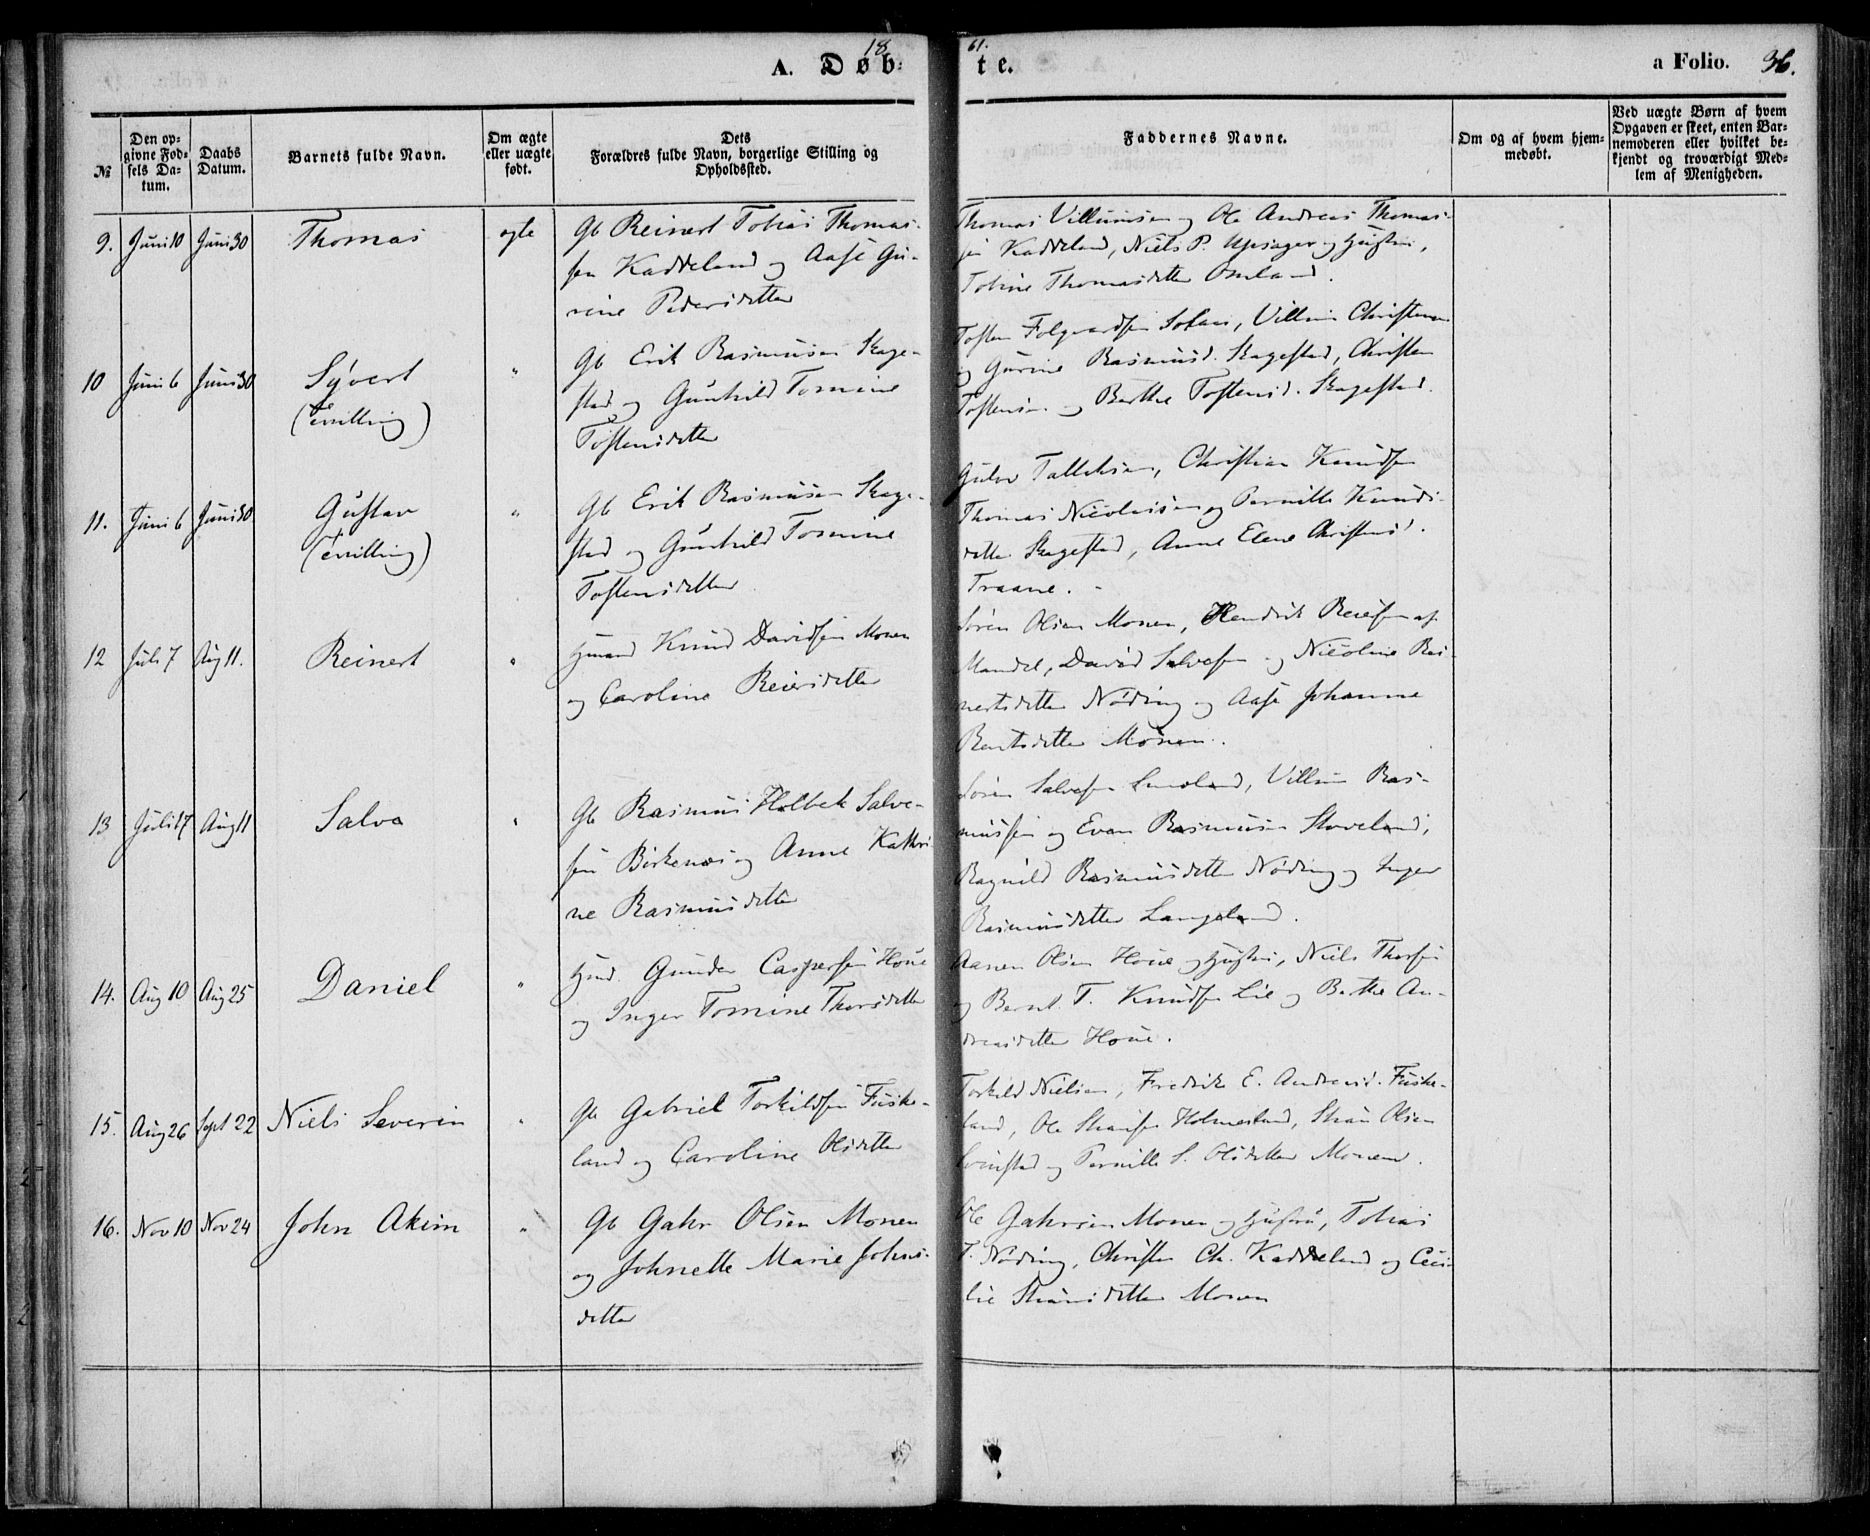 A. Døb- 18
61. te.
a Folio. 36.
№
Den op-
givne Fød-
sels Da-
tum.
Daabs
Datum.
Barnets fulde Navn.
Om ægte
eller uægte
født.
Dets
Forældres fulde Navn, borgerlige Stilling og
Opholdssted.
Faddernes Navne.
Om og af hvem hjem-
medøbt.
Ved uægte Børn af hvem
Opgaven er skeet, enten Bar-
nemoderen eller hvilket be-
kjendt og troværdigt Med-
lem af Menigheden.
9. Juni 10 Juni 30 Thomas ægte Gb Reinert Tobias Thomas-
sen Kaddeland og Aase Gu-
rine Pedersdatter
Thomas Villumsen og Ole Andreas Thomas-
sen Kaddeland, Niels P. Upsager og Hustru,
Tobine Thomasdatter Omland.
10 Juni 6 Juni 30 Syvert
(Tvilling)
" Gb Erik Rasmusen Skage-
stad og Gunhild Tomine
Tostensdatter
Tosten Folqvardsen, Villum Christensen
og Gurine Rasmusd. Skagestad, Christen
Tostensen og Berthe Tostensd. Skagestad.
11. Juni 6 Juni 30 Gustav
(Tvilling)
" Gb Erik Rasmusen Skage-
stad og Gunhild Tomine
Tostensdatter
Gulov Tallaksen, Christian Knudsen
Thomas Nicolaisen og Pernille Knuds-
datter Skagestad, Anne Elene Christensd.
Traane.
12 Juli 7 Aug 11. Reinert " Hmand Knud Davidsen Monen
og Caroline Reiersdatter
Søren Olsen Monen, Hendrik Reiersen af
Mandal, David Salvesen og Nicoline Rei-
nertsdatter Nøding og Aase Johanne
Berntsdatter Monen.
13 Juli 17 Aug 11 Salve " Gb Rasmus Holbek Salve-
sen Birkenæs og Anne Kathri-
ne Rasmusdatter
Søren Salvesen, Villum Ras-
mussen og Even Rasmusen Stoveland,
Ragnild Rasmusdatter Nøding og Inger
Rasmusdatter Langeland.
14. Aug 10 Aug 25 Daniel " Hmd. Gunder Caspersen Houe
og Inger Tomine Thorsdatter
Aanen Olsen Houe og Hustru, Niels Thorsen
og Bernt T. Knudsen Lie og Berthe An-
dreasdatter Houe.
15. Aug 26 Sept 22 Niels Severin " Gb Gabriel Torkildsen Fuske-
land og Caroline Olsdatter
Torkild Nielsen, Fredrik E. Andreasd. Fuske-
land, Ole Holmesland, Olsen
og Pernille S. Olsdatter Monen.
16. Nov 10 Nov 24 John Akim " Gb Gahr Olsen Monen
og Johnette Marie Johns-
datter
Ole Gahrsen Monen og Hustru, Tobias
T. Nøding, Christen Ch. Kaddeland og Ceci-
lie Monen